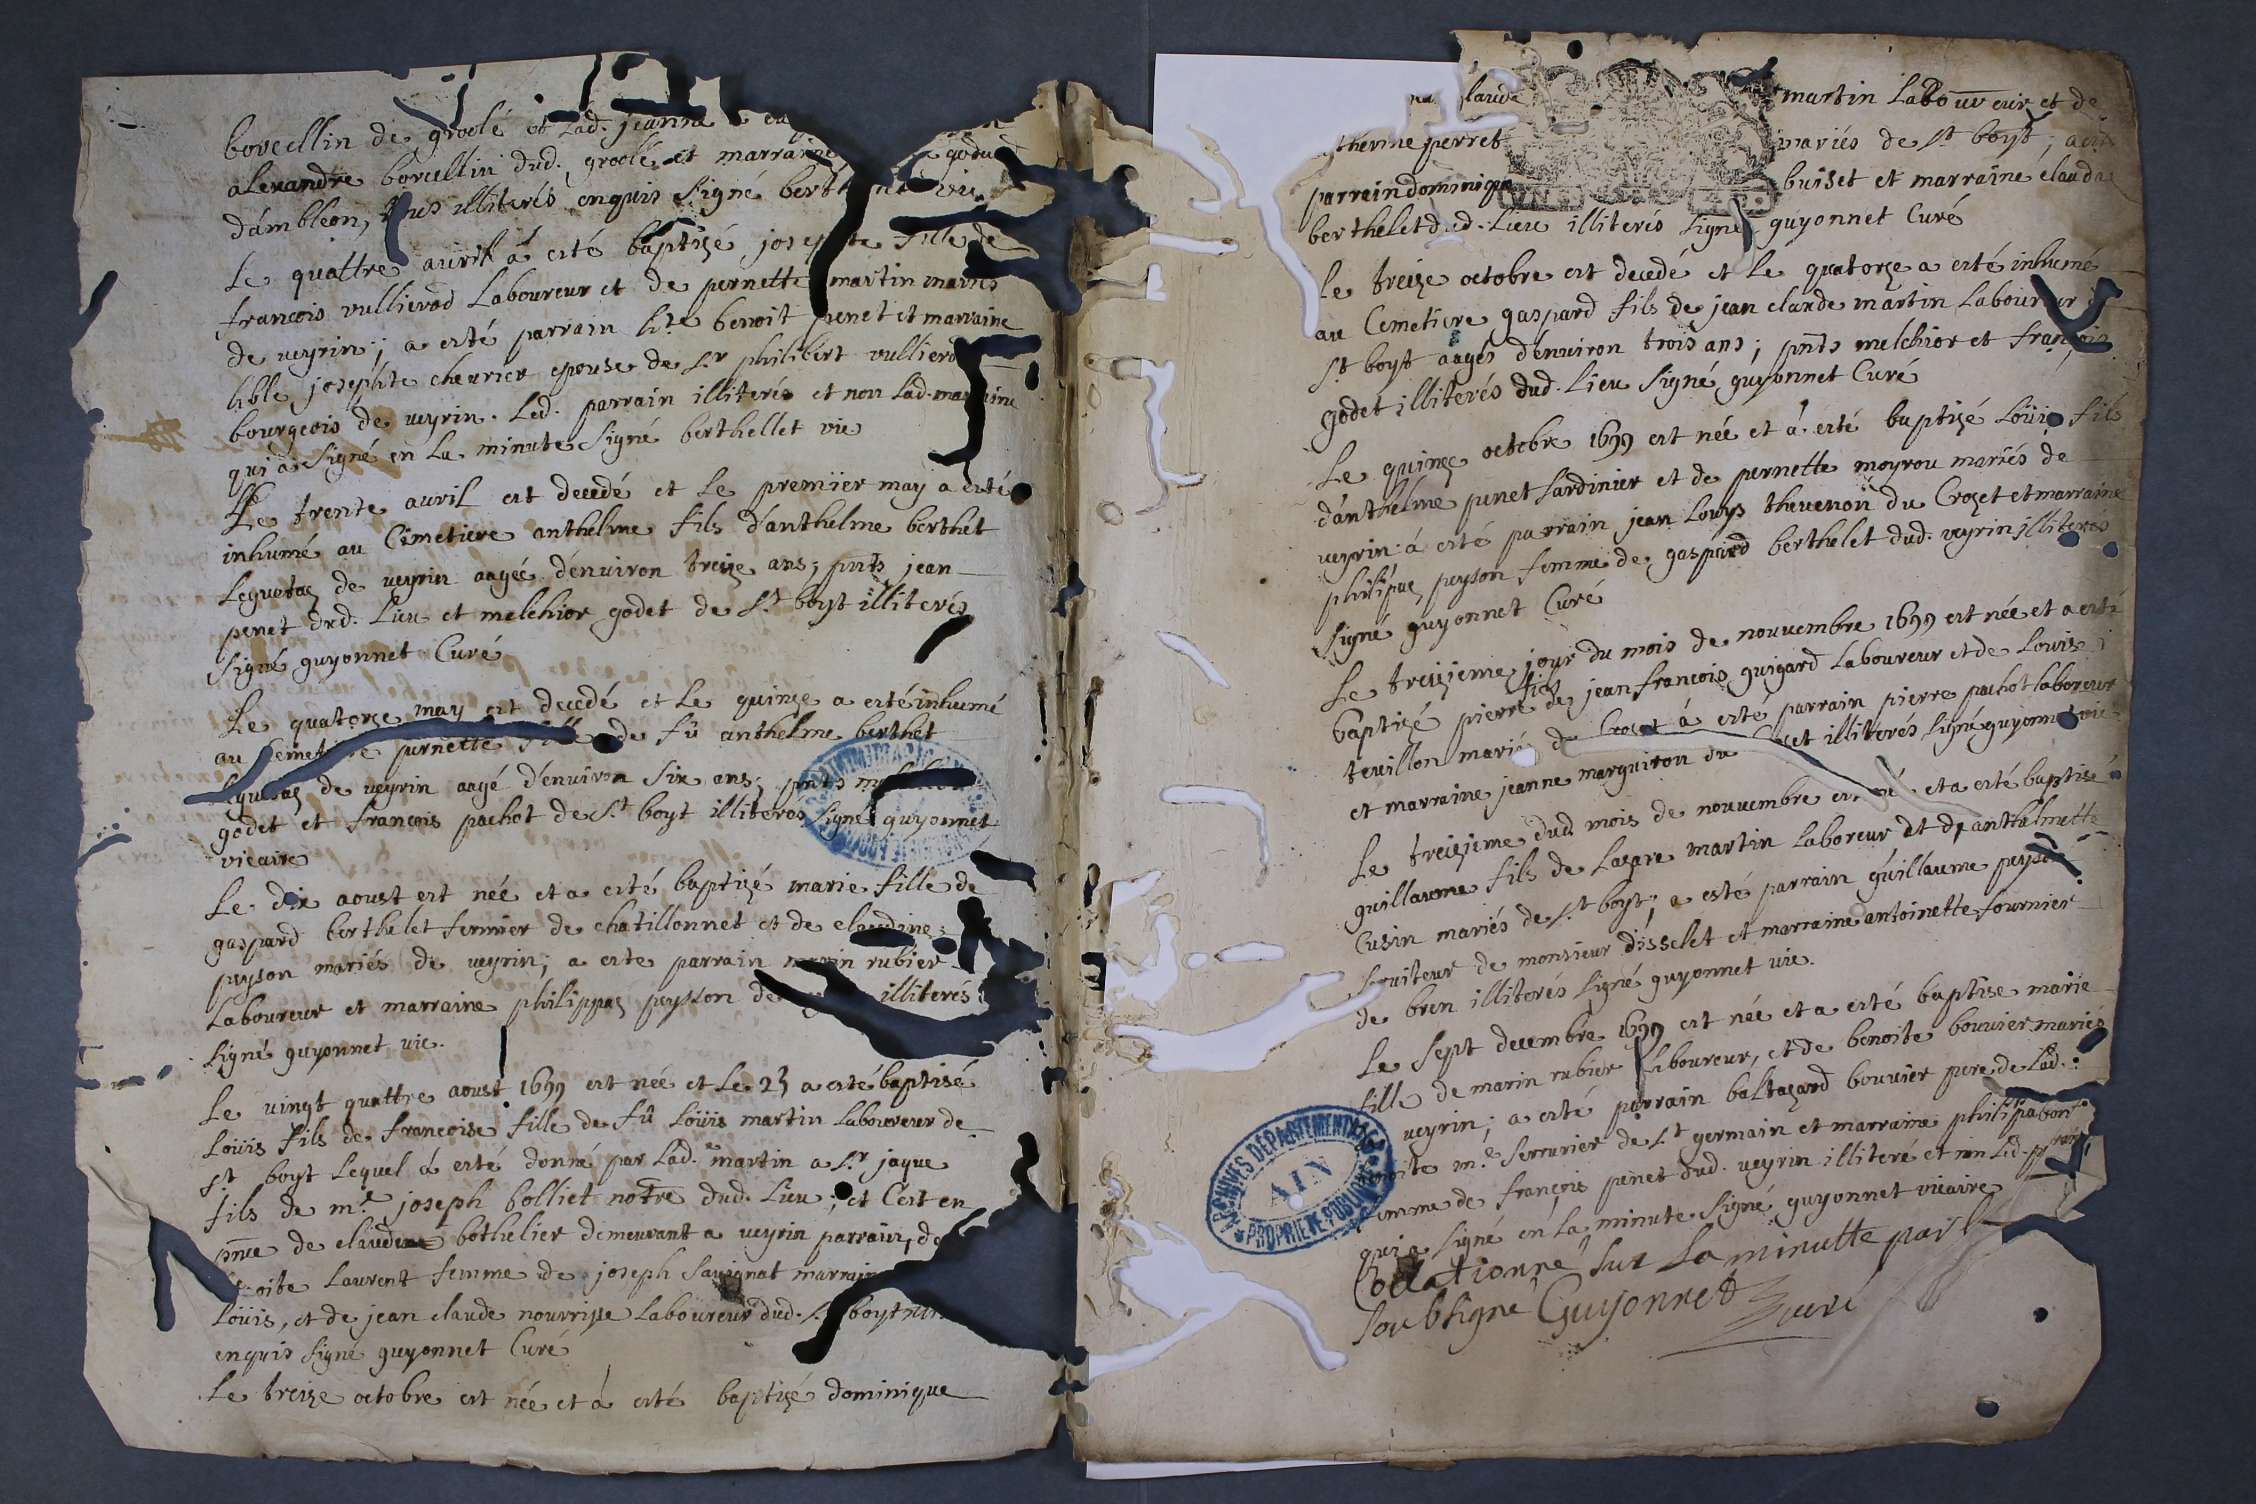 borcellin de groslé et lad. jeanne
alexandre borcellin dud. groslé et marraine
d'ambleon, tous illiterés enquis signé
Le quattre avril à esté baptizé josephte fille de
françois vullierod Laboureur et de pernette martin mariés
de veyrin; a esté parrain benoit penet et marraine
josephte chevrier epouse de Sr philibert vullierod
bourgeois de veyrin. Led. parrain illiterés et non Lad. marraine
qui à signé en La minute signé berthellet vic
Le trente avril est decedé et Le premier may a esté
inhumé au Cimetiere anthelme fils d'anthelme berthet
de veyrin aagée d'environ treize ans; pnts jean
penet dud. Lieu et melchior godet de St boyst illiterés
signé guyonnet Curé
Le quatorze may est decedé et Le quinze a esté inhumé
au pernette fille de fû anthelme berthet
de veyrin aagé d'environ six ans; pnts
godet et françois pachot de St boyt illiteros signé guyonnet
vicaire
Le dix aoust est née et a esté baptizé marie fille de
gaspard berthelet fermier de chatillonnet et de claudine
peyson mariés de veyrin; a este parrain marin rubier
Laboureur et marraine philippaz peysson de illiterés
signé guyonnet vic.
Le vingt quattre aoust 1699 est née et Le 25 a esté baptisé
Loüis fils de françoise fille de fû Loüis martin Laboureur de
St boyt Lequel à esté donné par Lad. martin a Sr jaque
fils de me joseph bolliet notre dud. Lieu; et C'est en
pnce de bothelier demeurant a veyrin parrain, de
Laurent femme de joseph Savignat marraine
Loüis, et de jean claude nourrisse Laboureur dud. St boyt
enquis signé guyonnet Curé
Le treize octobre est née et à esté baptizé dominique
martin Laboureur et de
perret mariés de St boyst; a esté
parrain dominique buiset et marraine claudaz
berthelet dud. Lieu illiterés signé guyonnet Curé
Le treize octobre est decedé et Le quatorze a esté inhumé
au Cemetiere gaspard fils de jean claude martin Laboureur
St boyst aagés d'environ trois ans; pnts melchior et françois
godet illiterés dud. Lieu signé guyonnet Curé
Le quinze octobre 1699 est née et à esté baptizé Loüis fils
d'anthelme penet Sardinier et de pernette moyrou mariés de
veyrin à esté parrain jean Louys thevenon du Crozet et marraine
philipaz peyson femme de gaspard berthelet dud. veyrin illiterés
signé guyonnet Curé
Le treizieme jour du mois de nouvembre 1699 est née et a esté
baptizé pierre fils de jean françois guigard Laboureur et de Louise
tevillon mariés du Crozet à esté parrain pierre pachot laboreur
et marraine jeanne marguiron du Crozet illiterés signé guyonnet vic
Le treizieme dud. mois de nouvembre est née et a esté baptisé
guillaume fils de Lazare martin Laboreur et d'anthelmette
Cusin mariés de St boyt; a esté parrain guillaume peyson
serviteur de monsieur d'isselet et marraine antoinette fournier
de bren illiterés signé guyonnet vic.
Le sept decembre 1699 est née et a esté baptise marie
fille de marin rubier Laboureur, et de benoite bouvier mariés
veyrin; a esté parrain baltazard bouvier pere de Lad.
benoite me serrurier de St germain et marraine philipa bon
femme de françois penet dud. veyrin illiteré et non Led. prain
qui a signé en La minute signé guyonnet vicaire
Collationné sur La minutte par
soubsigné Guyonned Curé
ARCHIVES DEPARTEMENTALES
AIN
PROPRIETE PUBLIQUE